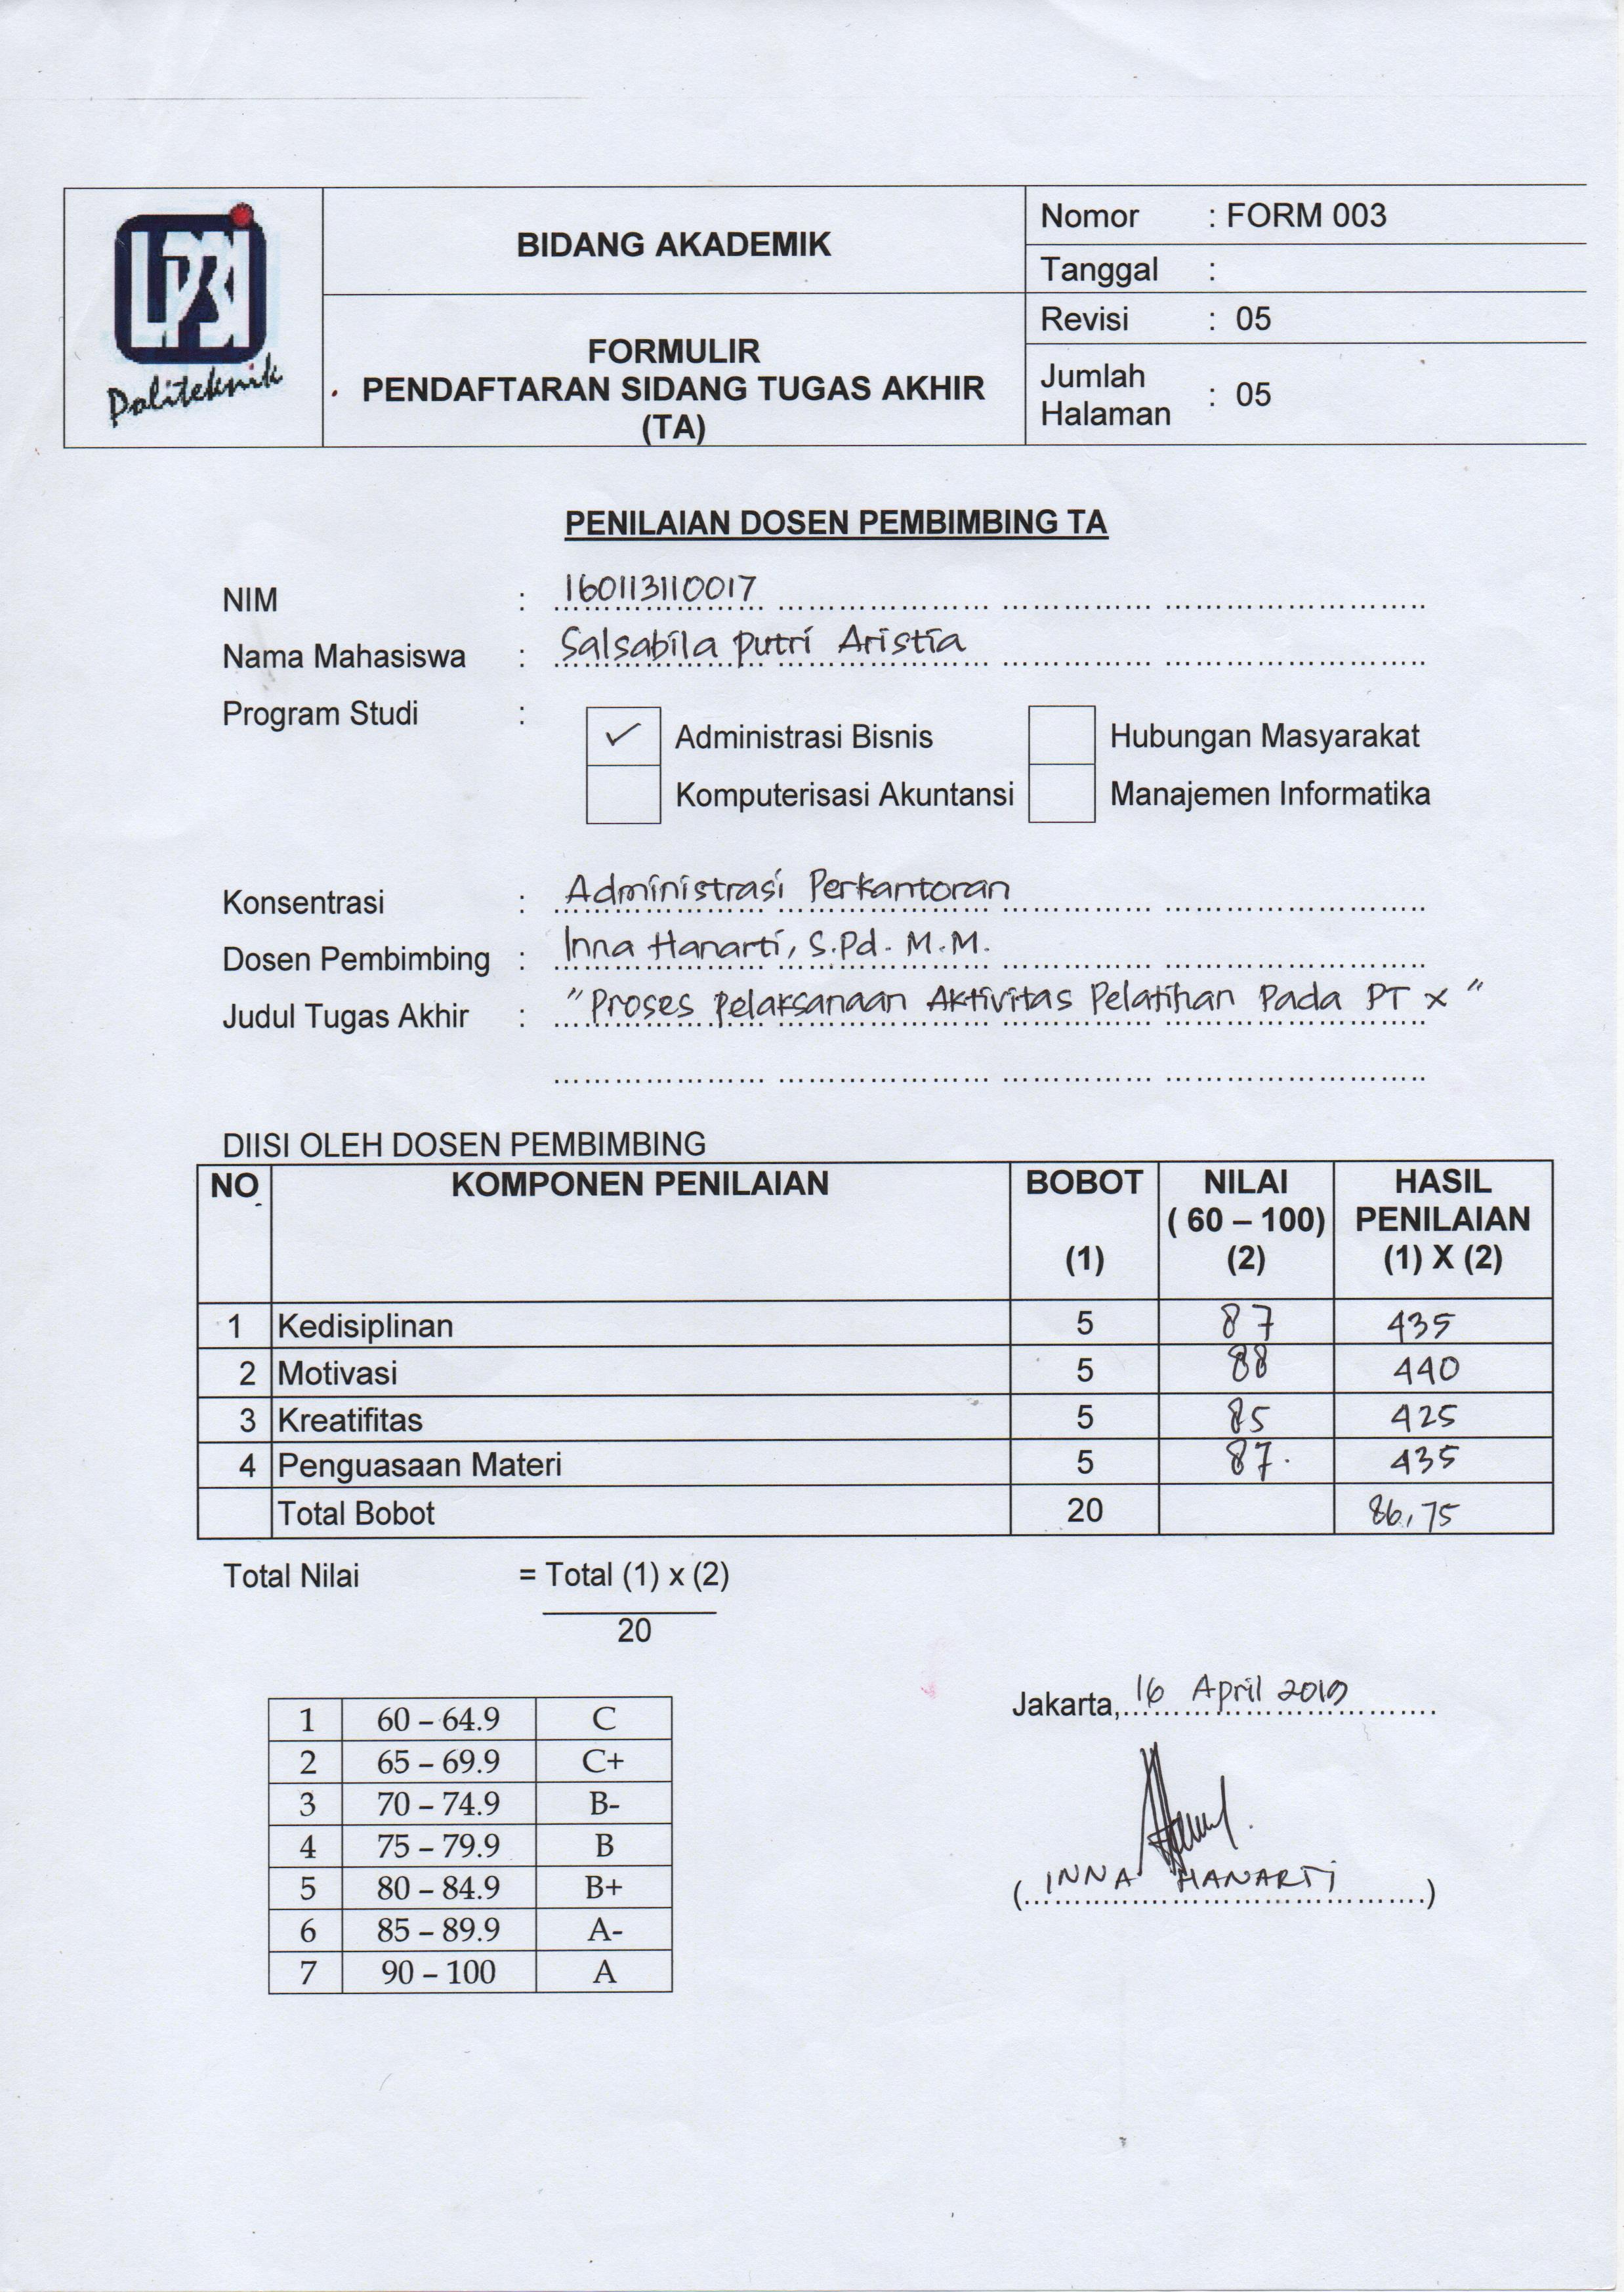 LP3I
Politeknik
BIDANG AKADEMIK
FORMULIR
PENDAFTARAN SIDANG TUGAS AKHIR
(TA)
Nomor : FORM 003
Tanggal :
Revisi : 05
Jumlah Halaman : 05
PENILAIAN DOSEN PEMBIMBING TA
NIM : 160113110017
Nama Mahasiswa : Salsabila Putri Aristia
Program Studi :
✓ Administrasi Bisnis Hubungan Masyarakat
Komputerisasi Akuntansi Manajemen Informatika
Konsentrasi : Administrasi Perkantoran
Dosen Pembimbing : Inna Hanarti, S.Pd. M.M.
Judul Tugas Akhir : "Proses Pelaksanaan Aktivitas Pelatihan Pada PT X"
DIISI OLEH DOSEN PEMBIMBING
NO KOMPONEN PENILAIAN BOBOT (1) NILAI ( 60 – 100) (2) HASIL PENILAIAN (1) X (2)
1 Kedisiplinan 5 87 435
2 Motivasi 5 88 440
3 Kreatifitas 5 85 425
4 Penguasaan Materi 5 87. 435
Total Bobot 20 86,75
Total Nilai = Total (1) x (2)
20
Jakarta, 16 April 2019
1 60 – 64.9 C
2 65 – 69.9 C+
3 70 – 74.9 B-
4 75 – 79.9 B
5 80 – 84.9 B+
6 85 – 89.9 A-
7 90 – 100 A
(INNA HANARTI)